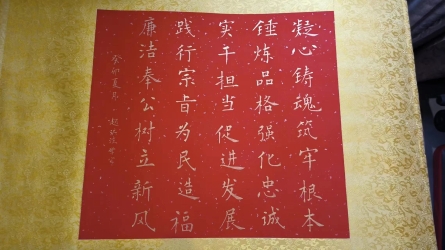 凝心铸魂筑牢根本
锤炼品格强化忠诚
实干担当促进发展
践行宗旨为民造福
廉洁奉公树立新风
癸卯夏月